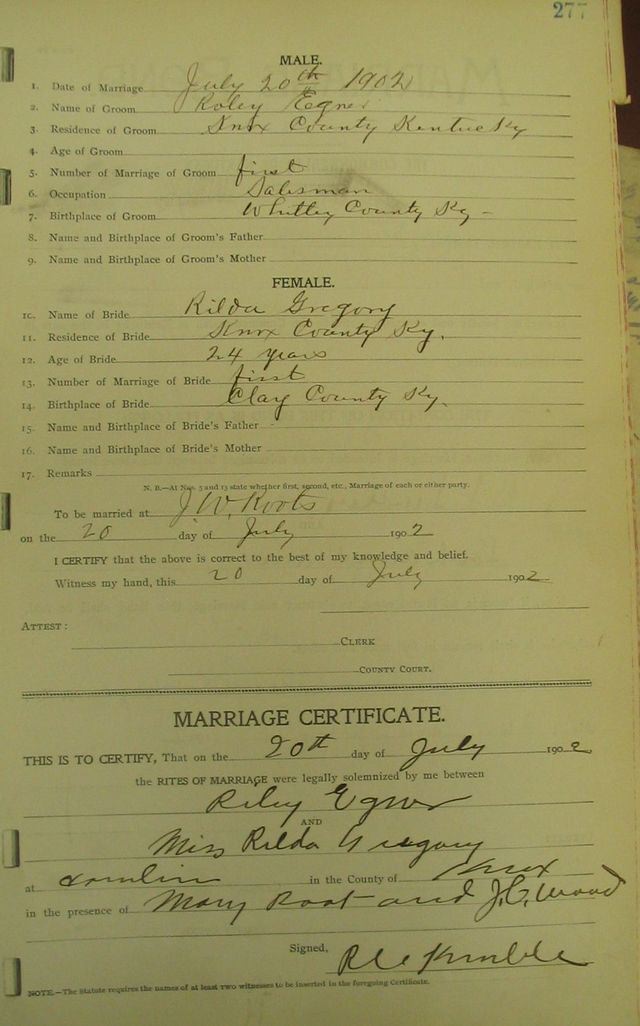 277
MALE.
1. Date of Marriage July 20th 1902
2. Name of Groom Roley Egner
3. Residence of Groom Knox County Kentucky
4. Age of Groom
5. Number of Marriage of Groom first
6. Occupation Salesman
7. Birthplace of Groom Whitley County Ky -
8. Name and Birthplace of Groom's Father
9. Name and Birthplace of Groom's Mother
FEMALE.
10. Name of Bride Rilda Gregory
11. Residence of Bride Knox County Ky.
12. Age of Bride 24 years
13. Number of Marriage of Bride first
14. Birthplace of Bride Clay County Ky.
15. Name and Birthplace of Bride's Father
16. Name and Birthplace of Bride's Mother
17. Remarks
N. B.—At Nos. 5 and 13 state whether first, second, etc., Marriage of each or either party.
To be married at J. W. Roots
on the 20 day of July 1902
I CERTIFY that the above is correct to the best of my knowledge and belief.
Witness my hand, this 20 day of July 1902
ATTEST:
CLERK
COUNTY COURT.
MARRIAGE CERTIFICATE.
THIS IS TO CERTIFY, That on the 20th day of July 1902
the RITES OF MARRIAGE were legally solemnized by me between
Riley Egner
AND
Miss Rilda Gregory
at in the County of Knox
in the presence of Mary Root and J. C. Wood
Signed,
NOTE.—The Statute requires the names of at least two witnesses to be inserted in the foregoing Certificate.